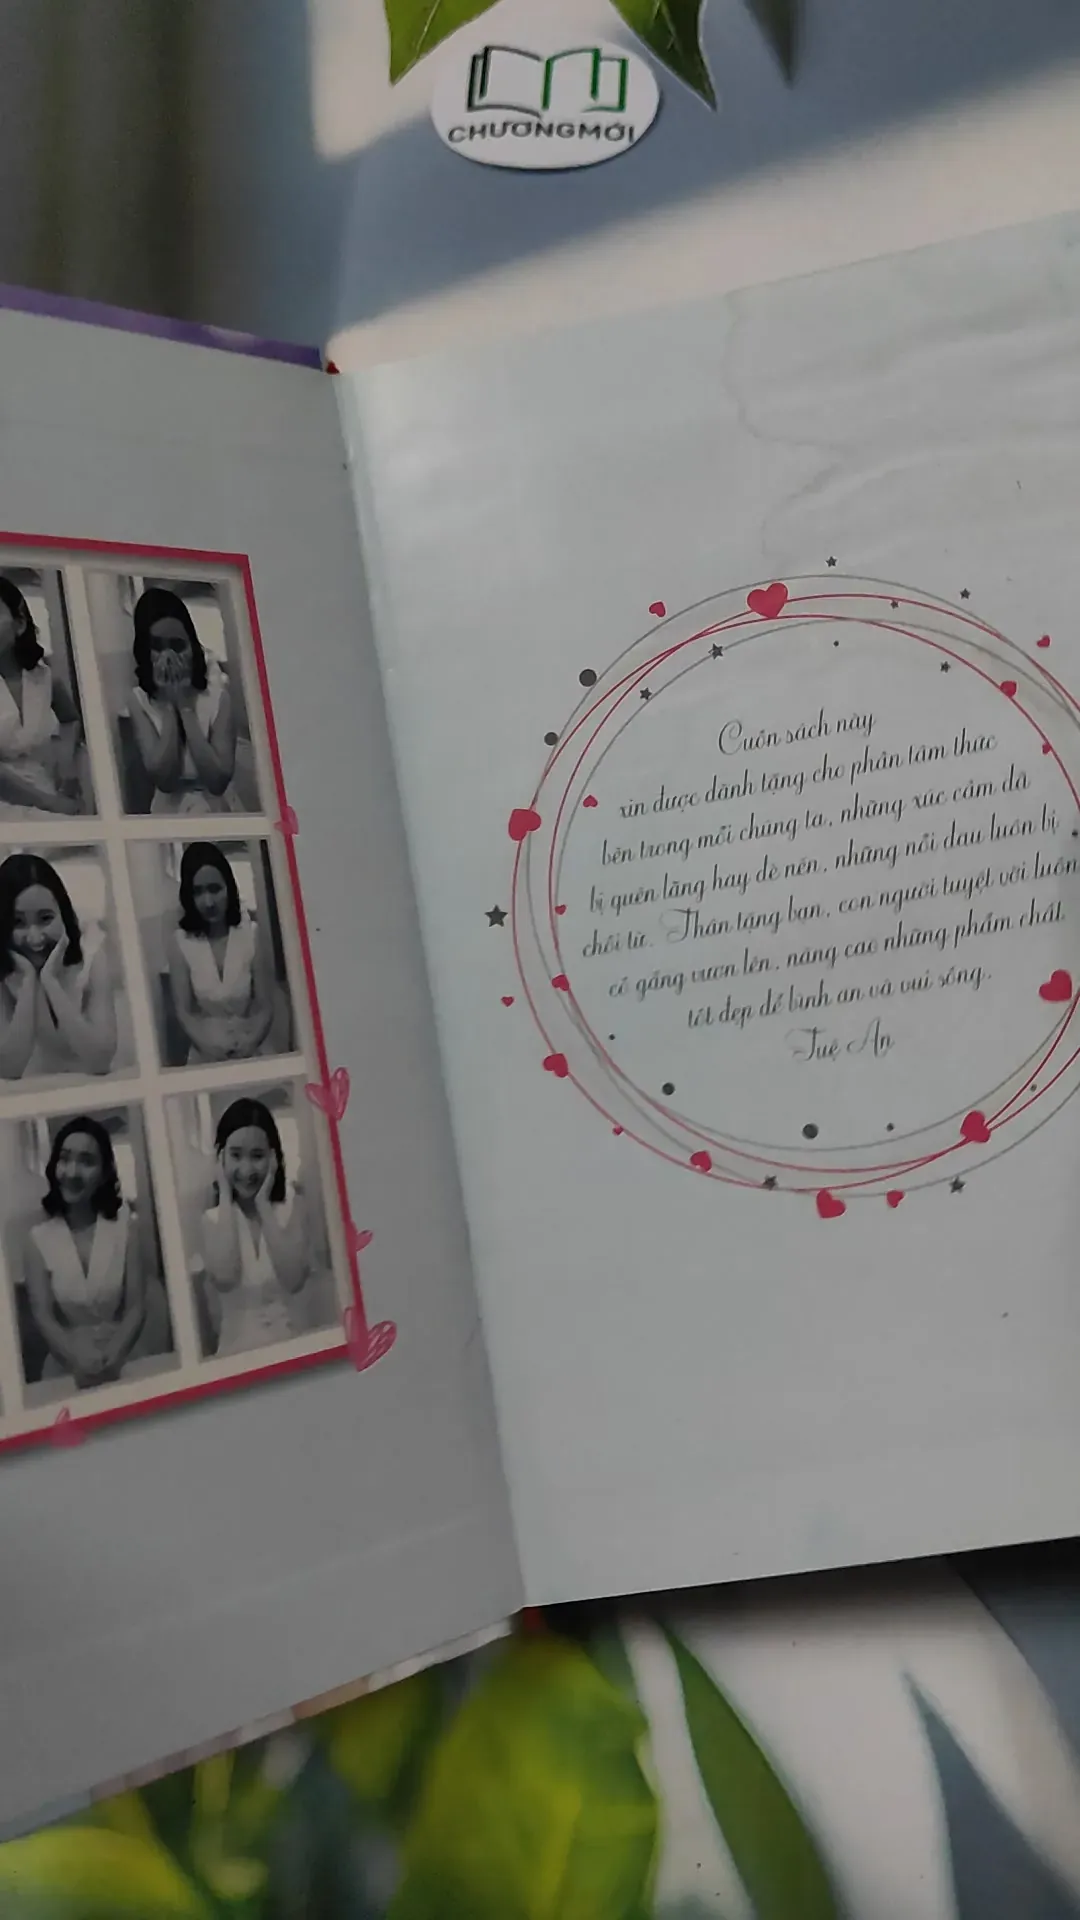 CHƯƠNGMỚI
Cuốn sách này
xin được dành tặng cho phần tâm thức
bên trong mỗi chúng ta, những xúc cảm đã
bị quên lãng hay đè nén, những nỗi đau luôn bị
chối từ. Thân tặng bạn, con người tuyệt vời luôn
cố gắng vươn lên, nâng cao những phẩm chất
tốt đẹp để bình an và vui sống.
Tuệ An